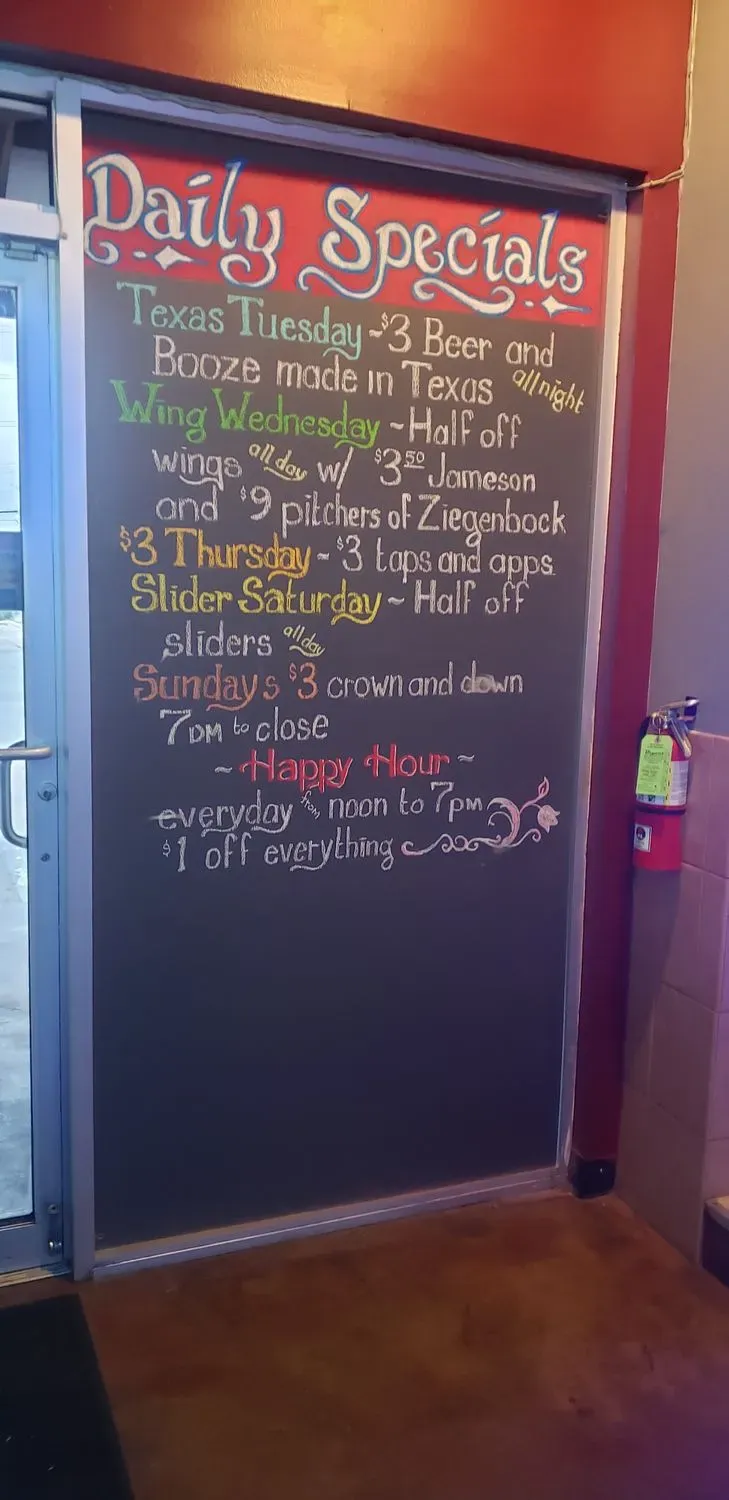 Daily Specials
Texas Tuesday ~ $3 Beer and
Booze made in Texas all night
Wing Wednesday ~ Half off
wings all day w/ $3 50 Jameson
and $9 pitchers of Ziegenbock
$3 Thursday ~ $3 taps and apps
Slider Saturday ~ Half off
sliders all day
Sundays $3 crown and down
7pm to close
~ Happy Hour ~
everyday from noon to 7pm
$1 off everything